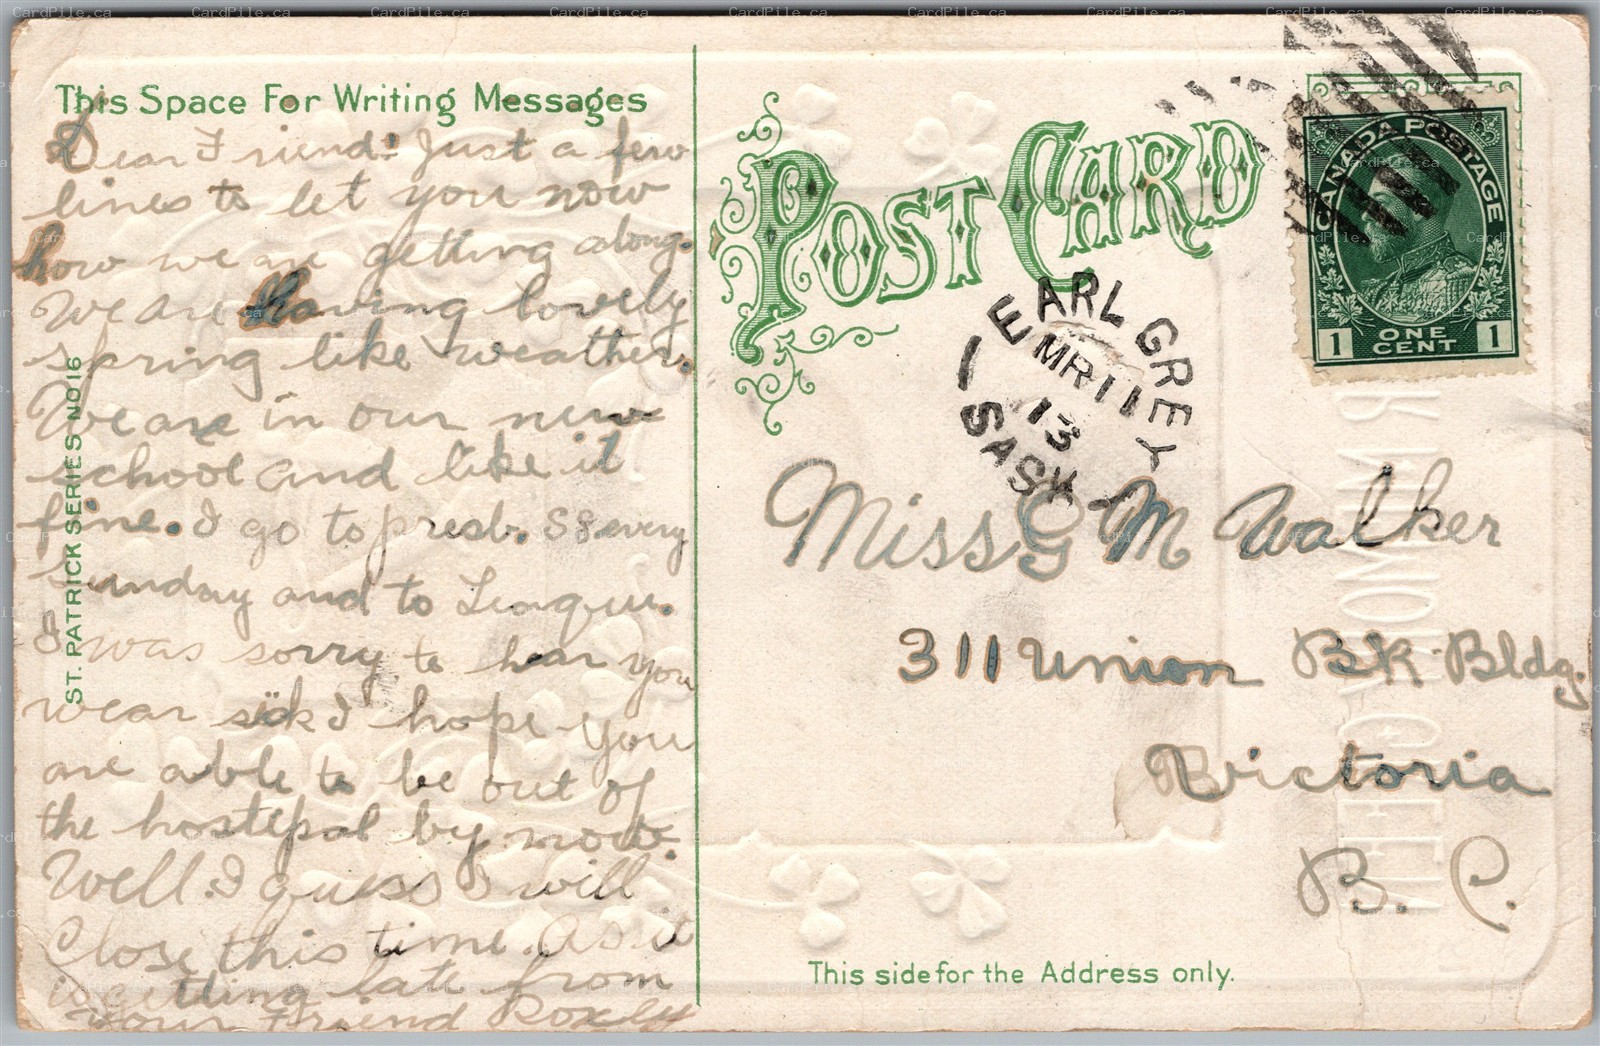 This Space For Writing Messages
Dear Friend: Just a few
lines to let you now
how we are getting along.
We are having lovely
spring like weather.
We are in our new
school and like it
fine. I go to presb. SS every
sunday and to Leaque.
I was sorry to hear you
wear sick I hope you
are able to be out of
the hostepal by now.
Well I guess I will
Close this time. As it
is getting late from
your Friend Roxely
ST. PATRICK SERIES NO 16
POST CARD
CANADA POSTAGE
1 ONE CENT 1
EARL GREY
MR 11
13
SASK
Miss G M Walker
311 Union BK Bldg.
Victoria
B. C.
This side for the Address only.
CardPile.ca